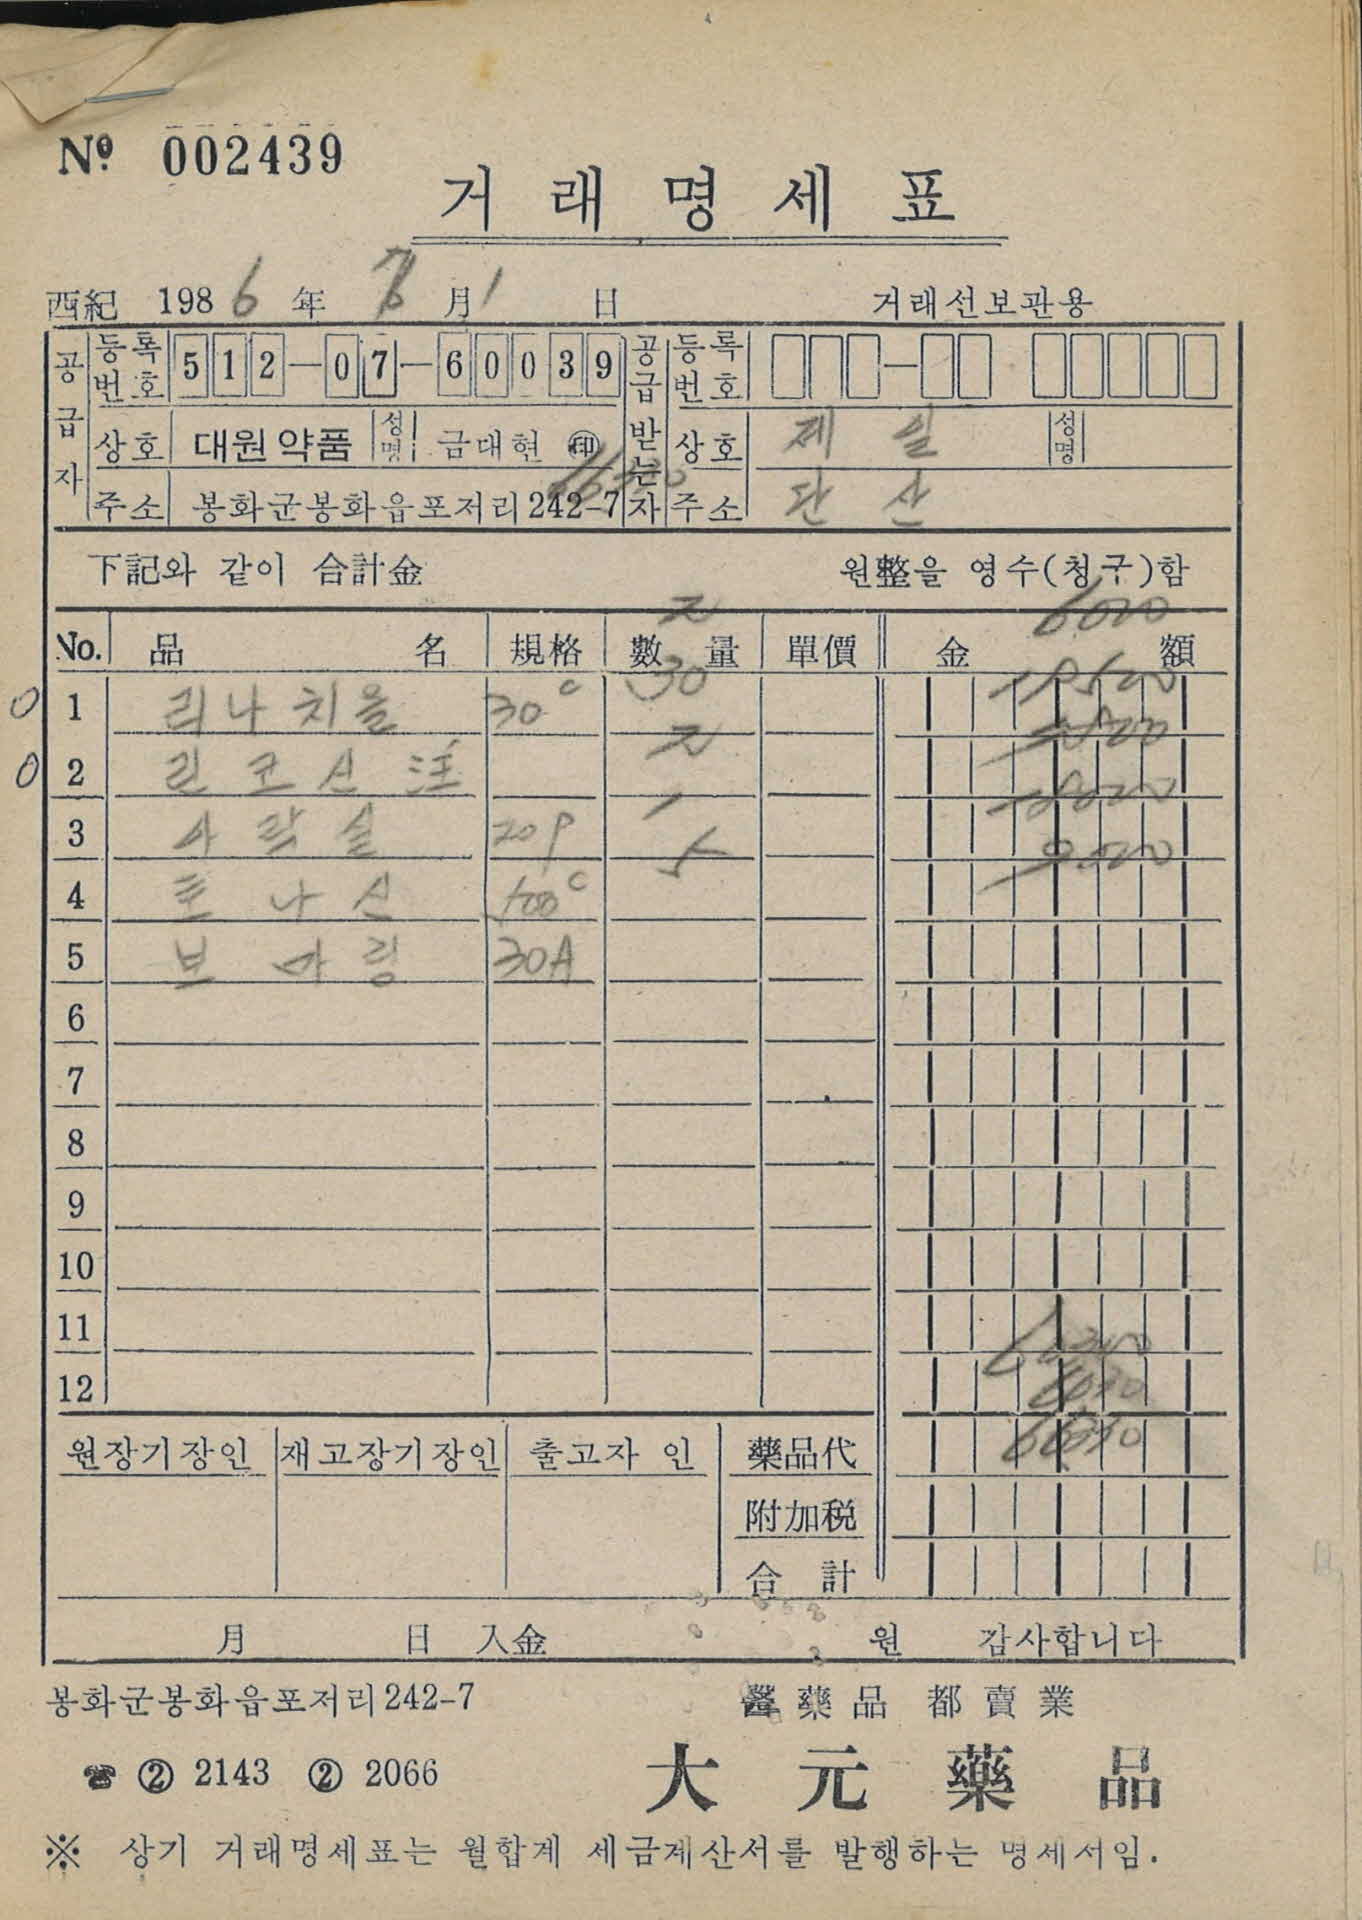 No. 002439
거래명세표
西紀 1986年 7月 1日 거래선보관용
공급자 등록번호 512-07-60039 공급받는자 등록번호
상호 대원약품 성명 금대현 ㊞ 상호 제일 성명
주소 봉화군봉화읍포저리242-7 주소 단산
下記와 같이 合計金 원整을 영수(청구)함
No. 品名 規格 數量 單價 金額
1 리나치올 30c
2 린코신 注
3 아락실 20P
4 트나신 100c
5 브마링 30A
6
7
8
9
10
11
12
원장기장인 재고장기장인 출고자 인 藥品代
附加税
合計
月 日 入金 원 감사합니다
봉화군봉화읍포저리242-7 醫藥品 都賣業
☎ ② 2143 ② 2066 大元藥品
※ 상기 거래명세표는 월합계 세금계산서를 발행하는 명세서임.